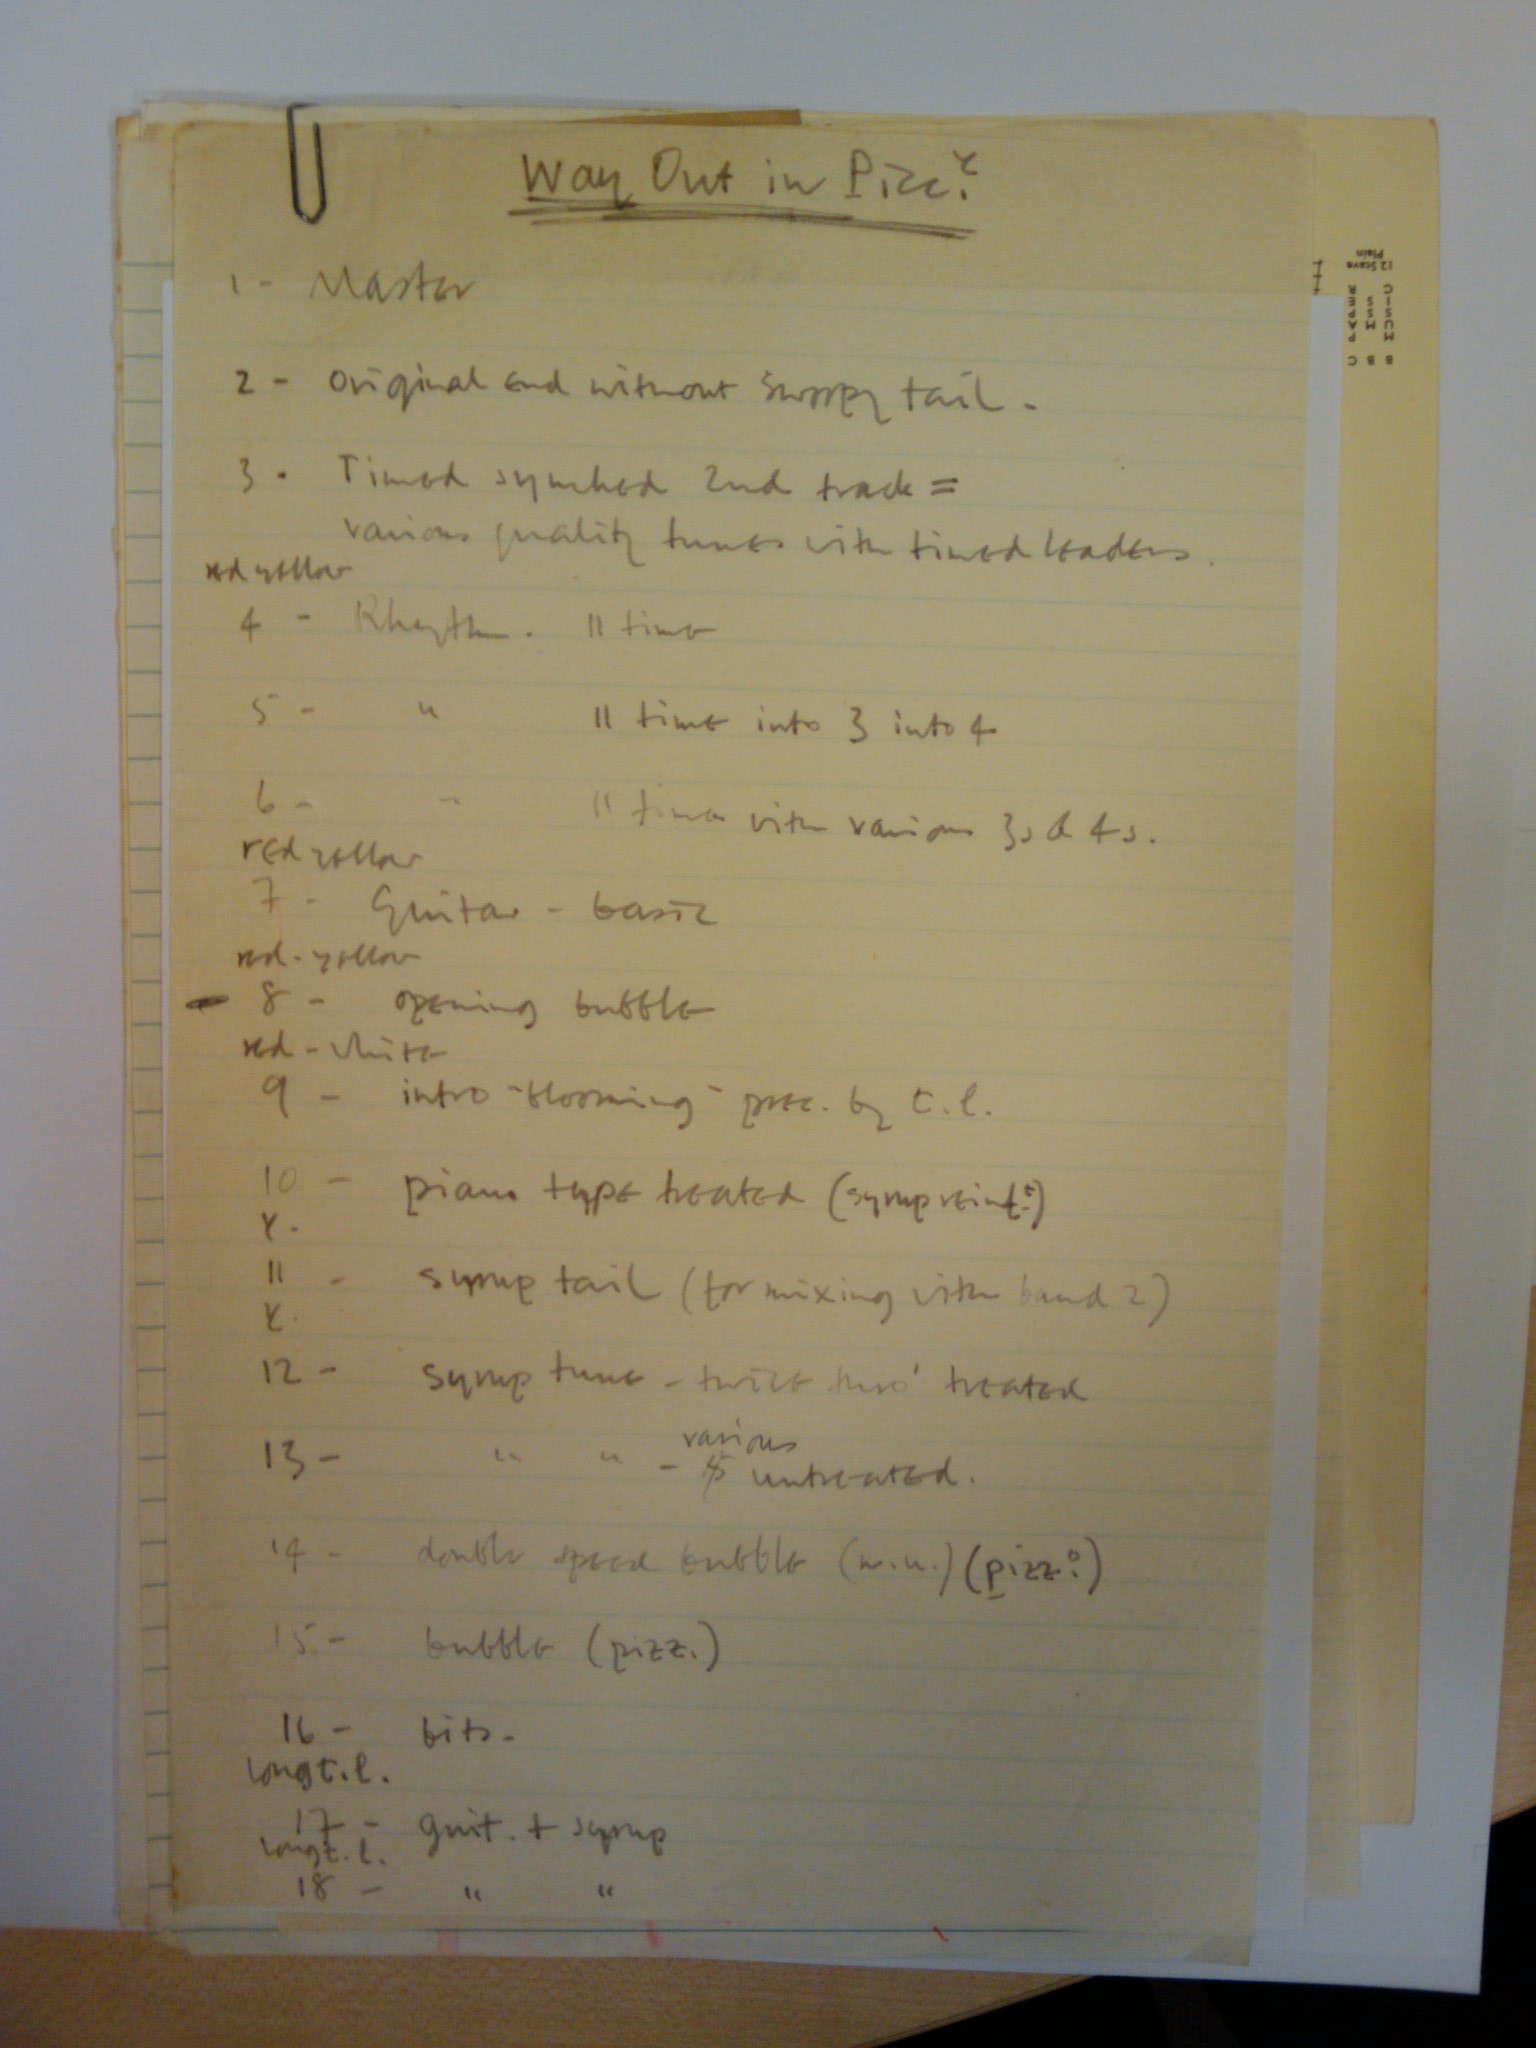 Way Out in Pizz?
1 - Master
2 - Original end without swoopy tail.
3 - Timed synched 2nd track =
various quality tunes with timed leaders.
red yellow
4 - Rhythm. 11 time
5 - " 11 time into 3 into 4
6 - " 11 time with various 3s & 4s.
red yellow
7 - Guitar - basic
red - yellow
- 8 - opening bubble
red - white
9 - intro "blooming" prec. by t.l.
10 - piano type treated (syrup reinf.t)
Y.
11 - syrup tail (for mixing with band 2)
Y.
12 - syrup tune - twice thro' treated
various
13 - " " - untreated.
14 - double speed bubble (w.u.) (pizz.o)
15 - bubble (pizz.)
16 - bits.
long t.l.
17 - guit. + syrup
long t.l.
18 - " "
BBC
MUSIC
MSS
PAPER
12 Stave
Plain